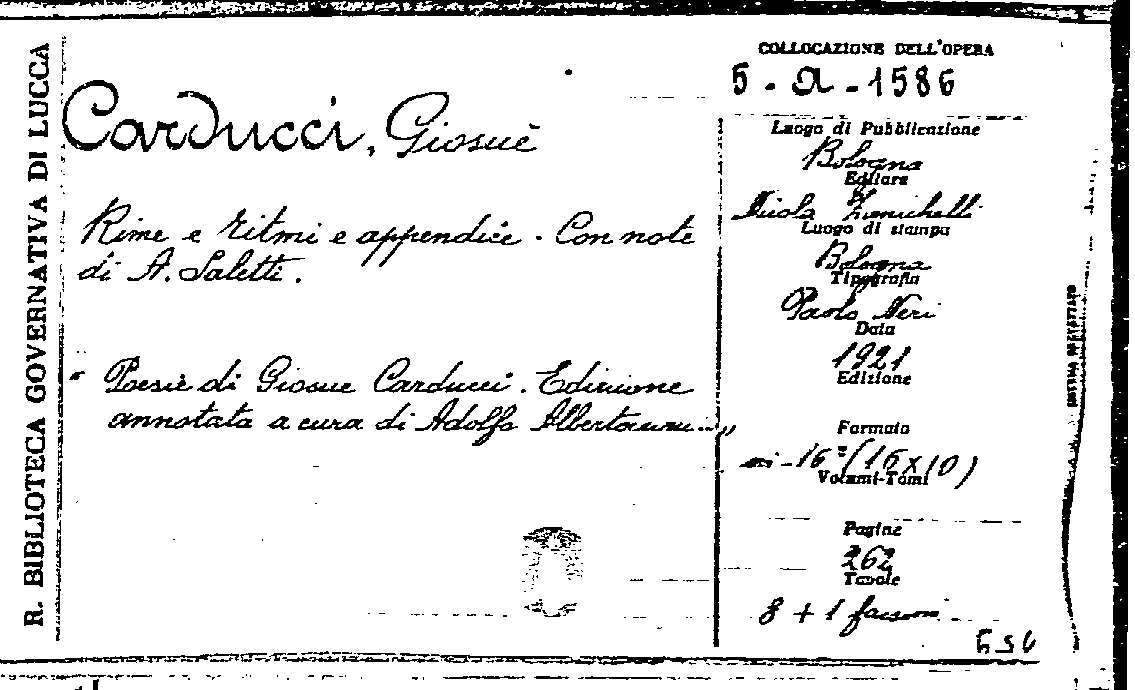 R. BIBLIOTECA GOVERNATIVA DI LUCCA
Carducci, Giosuè
Rime e ritmi e appendice. Con note
di A. Saletti.
" Poesie di Giosue Carducci. Edizione
annotata a cura di Adolfo Albertazzi..."
COLLOCAZIONE DELL'OPERA
5-a-1586
Luogo di Pubblicazione
Bologna
Editore
Nicola Zanichelli
Luogo di stampa
Bologna
Tipografia
Paolo Neri
Data
1921
Edizione
Formato
in-16°(16x10)
Volumi-Tomi
Pagine
262
Tavole
8 + 1